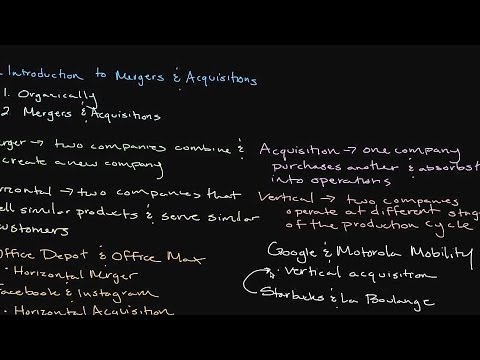 Introduction to Mergers & Acquisitions
1. Organically
2. Mergers & Acquisitions
erger → two companies combine &
create a new company
orizontal → two companies that
ell similar products & serve similar
customers
Office Depot & Office Max
· Horizontal Merger
Facebook & Instagram
· Horizontal Acquisition
Acquisition → one company
purchases another & absorbs it
into operations
Vertical → two companies
operate at different stag
of the production cycle
Google & Motorola Mobility
· vertical acquisition
Starbucks & La Boulange